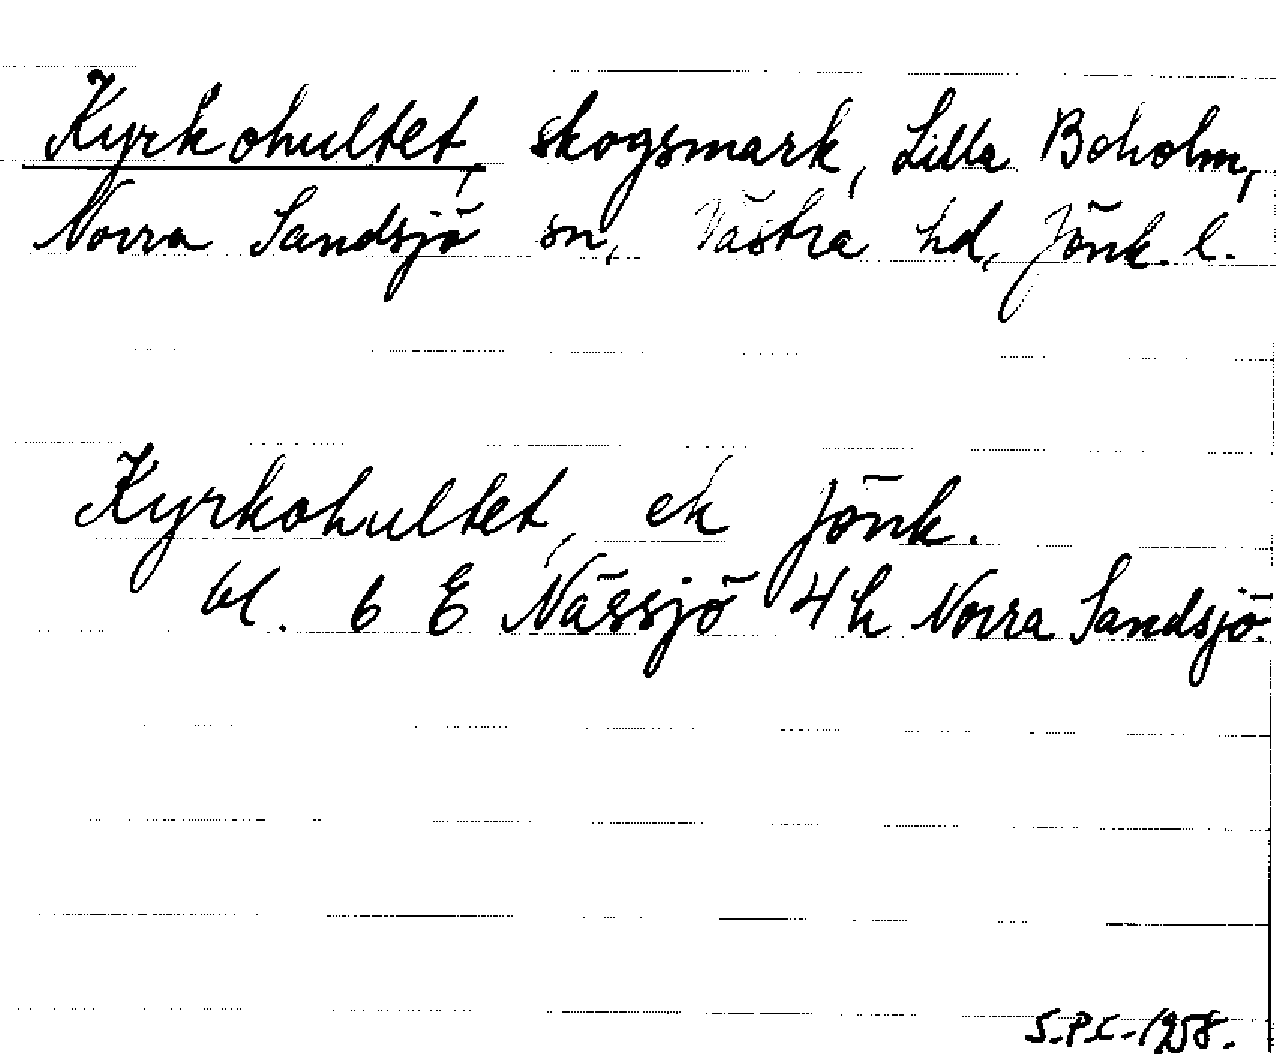 Kyrkohultet, skogsmark, Lilla Boholm,
Norra Sandsjö sn, Västra hd, Jönk. l.
Kyrkohultet, ek Jönk.
bl. 6 E Nässjö 4h Norra Sandsjö.
S.P.C-1958.